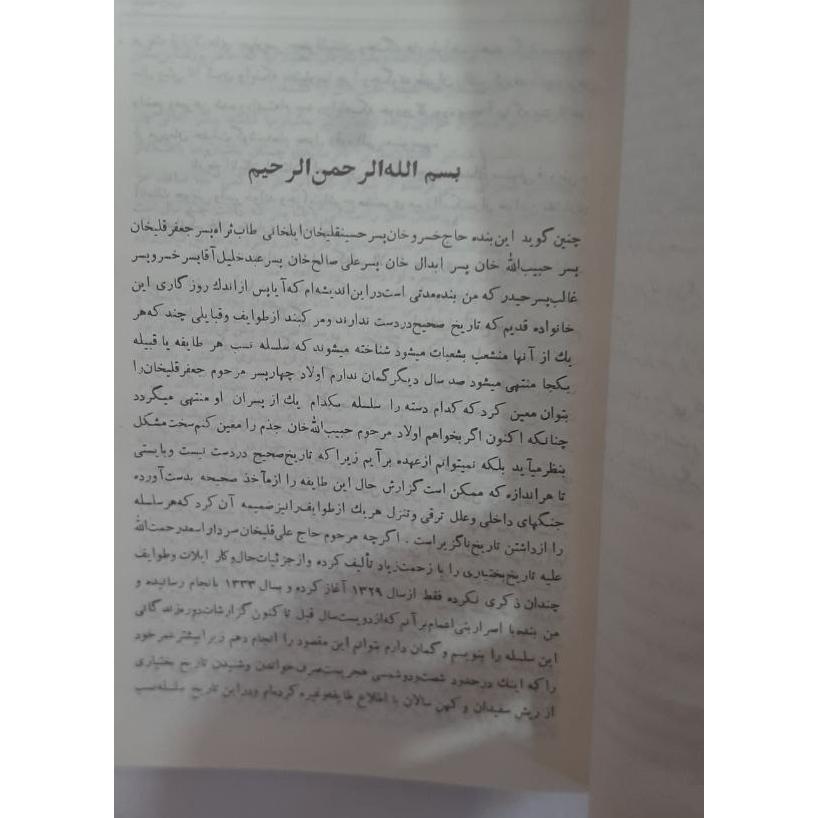 بسم الله الرحمن الرحیم
چنین گوید این بنده حاج خسروخان پسر حسینقلیخان ایلخانی طاب ثراه پسر جعفر قلیخان
پسر حبیب الله خان پسر ابدال خان پسر علی صالح خان پسر عبدخلیل آقا پسر خسرو پسر
غالب پسر حیدر که من بنده مدتی است در این اندیشه ام که آیا پس از اندك روزگاری این
خانواده قدیم که تاریخ صحیح در دست ندارند و مرکبند از طوایف و قبایلی چند که هر
یك از آنها منشعب بشعبات میشود شناخته میشوند که سلسله نسب هر طایفه یا قبیله
بکجا منتهی میشود صد سال دیگر گمان ندارم اولاد چهار پسر مرحوم جعفر قلیخان را
بتوان معین کرد که کدام دسته را سلسله بکدام یك از پسران او منتهی میگردد
چنانکه اکنون اگر بخواهم اولاد مرحوم حبیب الله خان جدم را معین کنم سخت مشکل
بنظر میآید بلکه نمیتوانم از عهده برآیم زیرا که تاریخ صحیح در دست نیست و بایستی
تا هر اندازه که ممکن است گزارش حال این طایفه را از مآخذ صحیحه بدست آورده
جنگهای داخلی و علل ترقی و تنزل هر یك از طوایف را نیز ضمیمه آن کرد که هر سلسله
را از داشتن تاریخ ناگزیر است . اگرچه مرحوم حاج علی قلیخان سردار اسعد رحمت الله
علیه تاریخ بختیاری را با زحمت زیاد تألیف کرده و از جزئیات حال و کار ایلات و طوایف
چندان ذکری نکرده فقط از سال ۱۳۲۹ آغاز کرده و بسال ۱۳۳۳ بانجام رسانیده و
من بنده با اصرار بنی اعمام برآنم که از دویست سال قبل تا کنون گزارشات دوره زندگانی
این سلسله را بنویسم و گمان دارم بتوانم این مقصود را انجام دهم زیرا بیشتر عمر خود
را که اینك در حدود شصت و دو شمسی هجریست صرف خواندن و شنیدن تاریخ بختیاری
از ریش سفیدان و کهن سالان با اطلاع طایفه و غیره کرده ام و در این تاریخ سلسله نسب